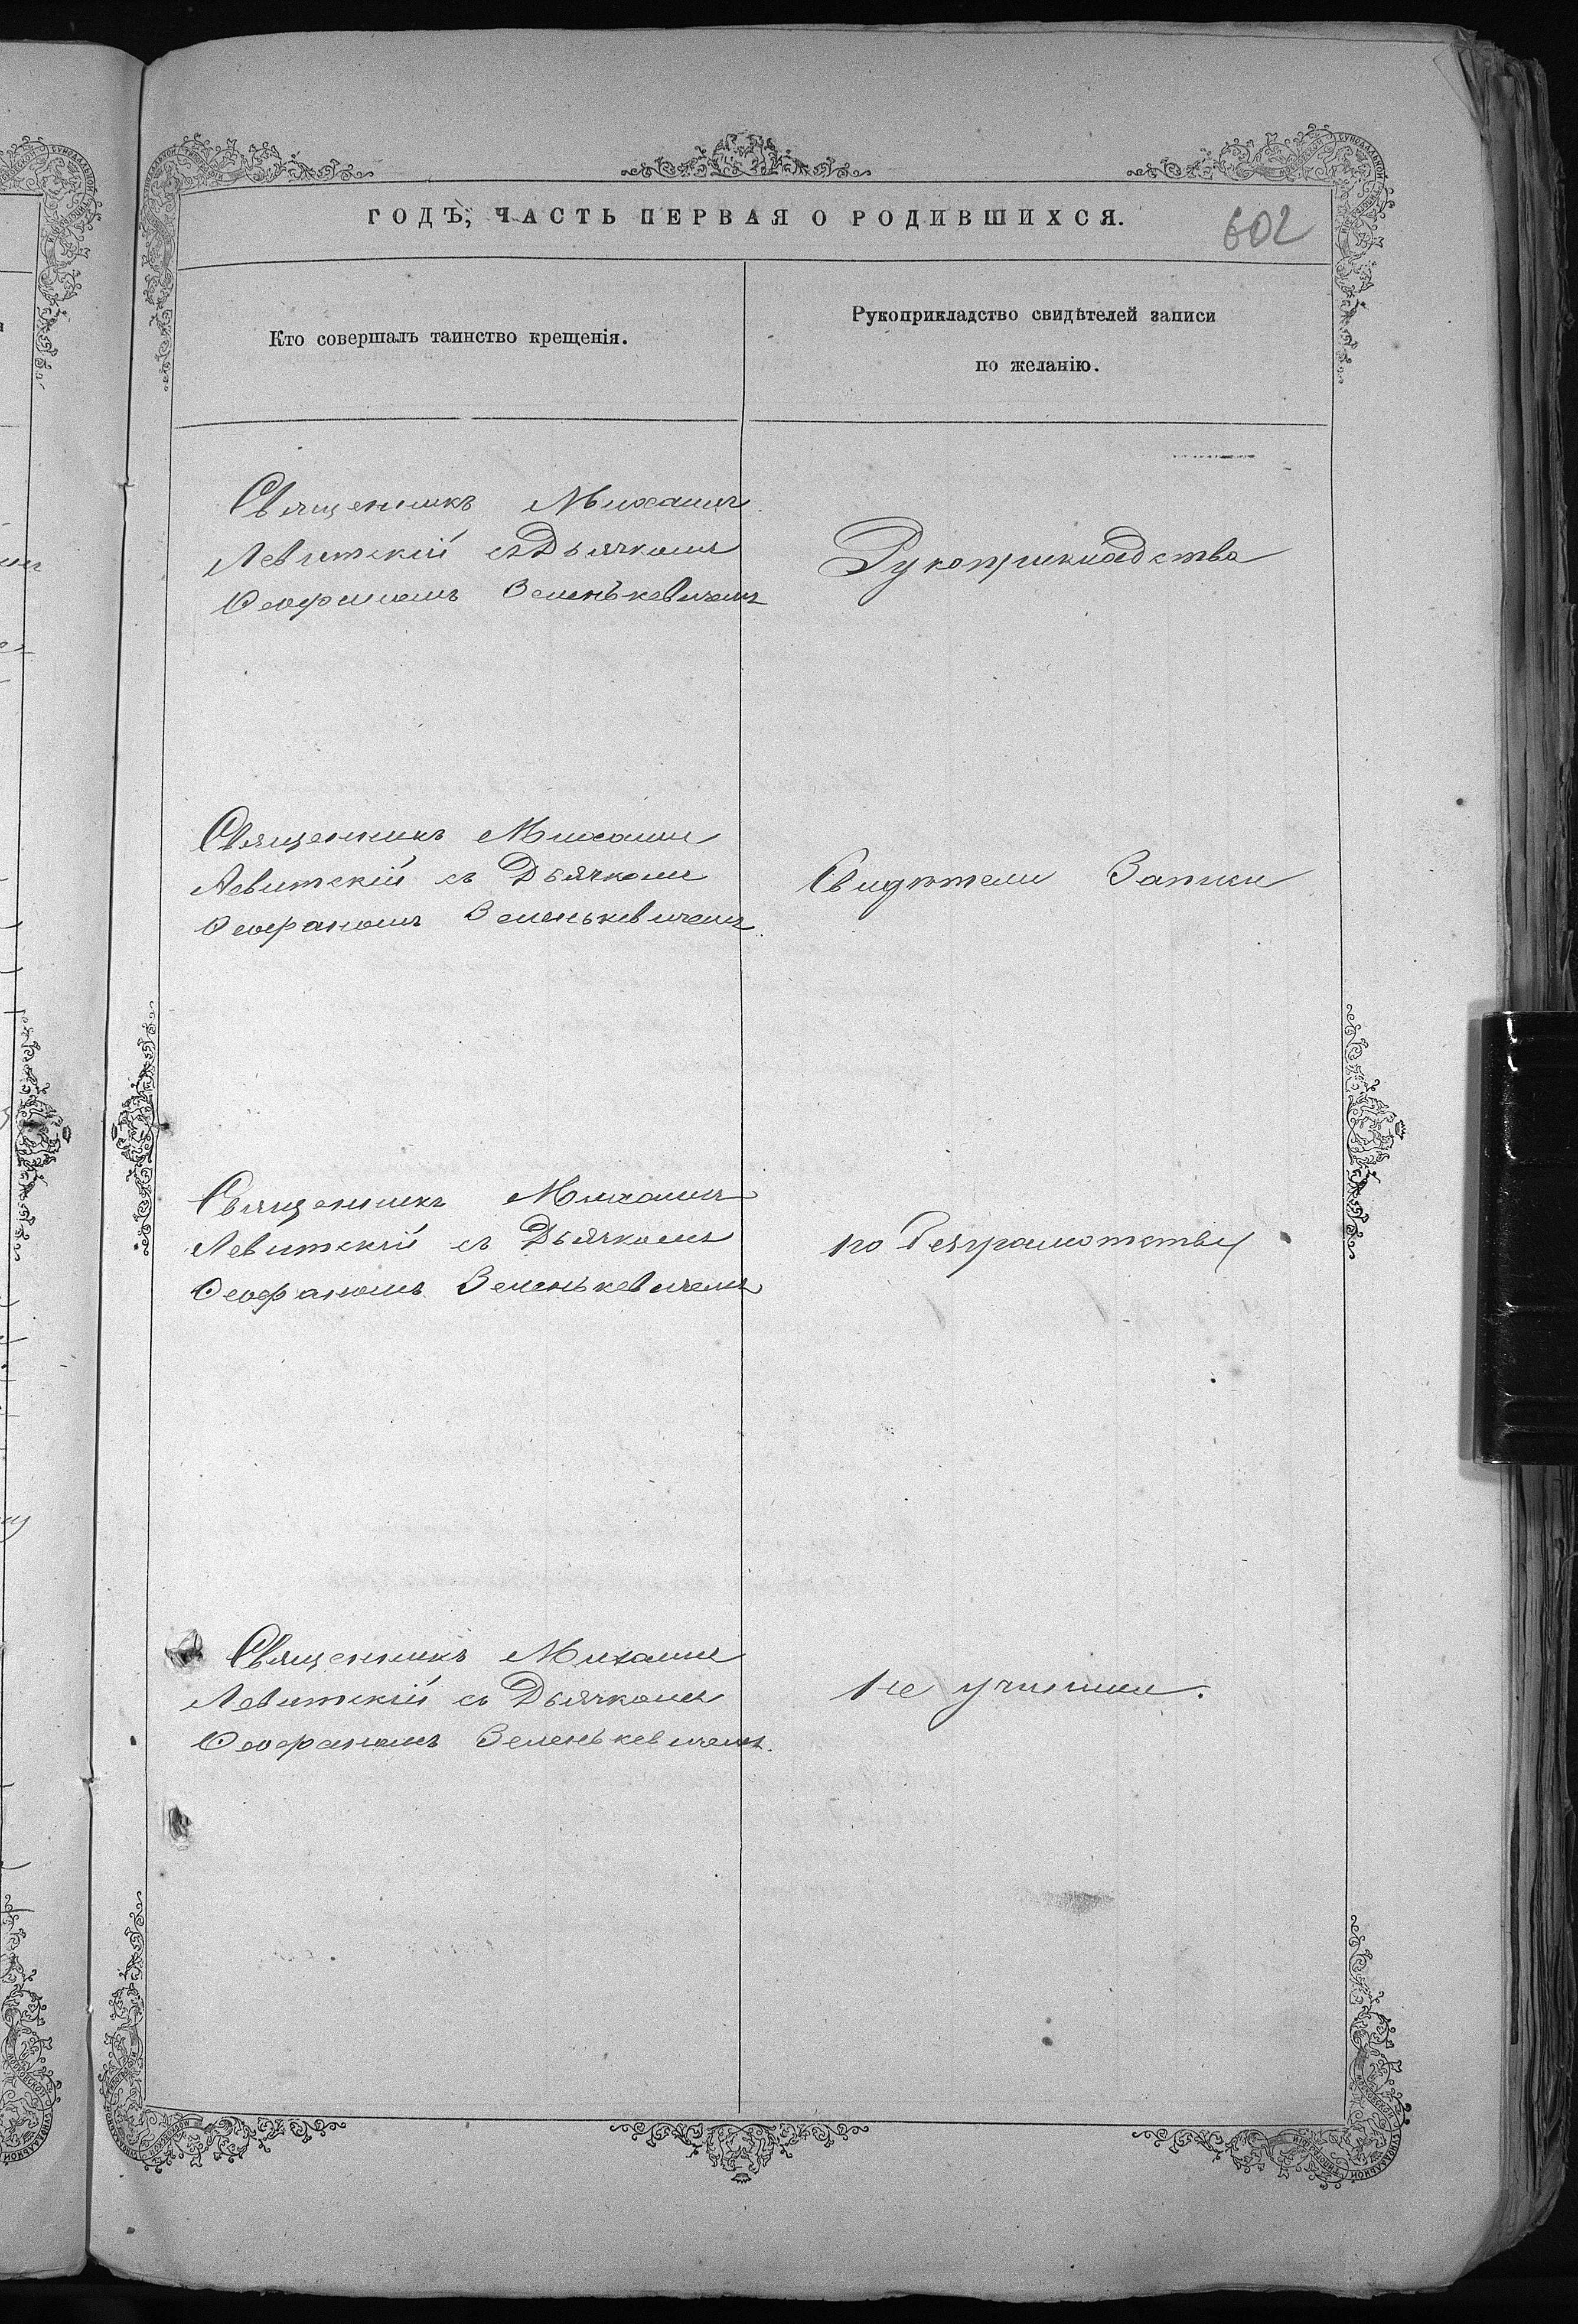 ГОДЪ, ЧАСТЬ ПЕРВАЯ О РОДИВШИХСЯ.
602
Кто совершалъ таинство крещенія.
Рукоприкладство свидѣтелей записи
по желанію.
Священникъ Михаилъ
Левитскій съ Дьячкомъ
Ѳеофаномъ Зеленькевичемъ
Рукоприкладства
Священникъ Михаилъ
Левитскій съ Дьячкомъ
Ѳеофаномъ Зеленькевичемъ
Свидѣтели Записи
Священникъ Михаилъ
Левитскій съ Дьячкомъ
Ѳеофаномъ Зеленькевичемъ
по безграмотству
Священникъ Михаилъ
Левитскій съ Дьячкомъ
Ѳеофаномъ Зеленькевичемъ.
не учинили.